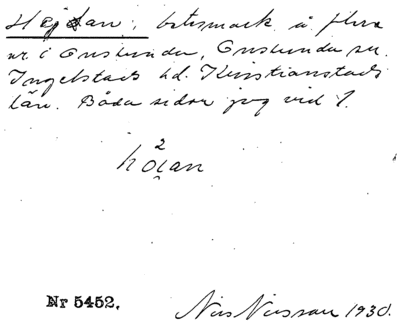 Hejdan: betesmark å flera
nr i Onslunda, Onslunda sn.
Ingelstads hd. Kristianstads
län. Båda sidor
2
Nr 5452.
Nils Nilsson 1930.